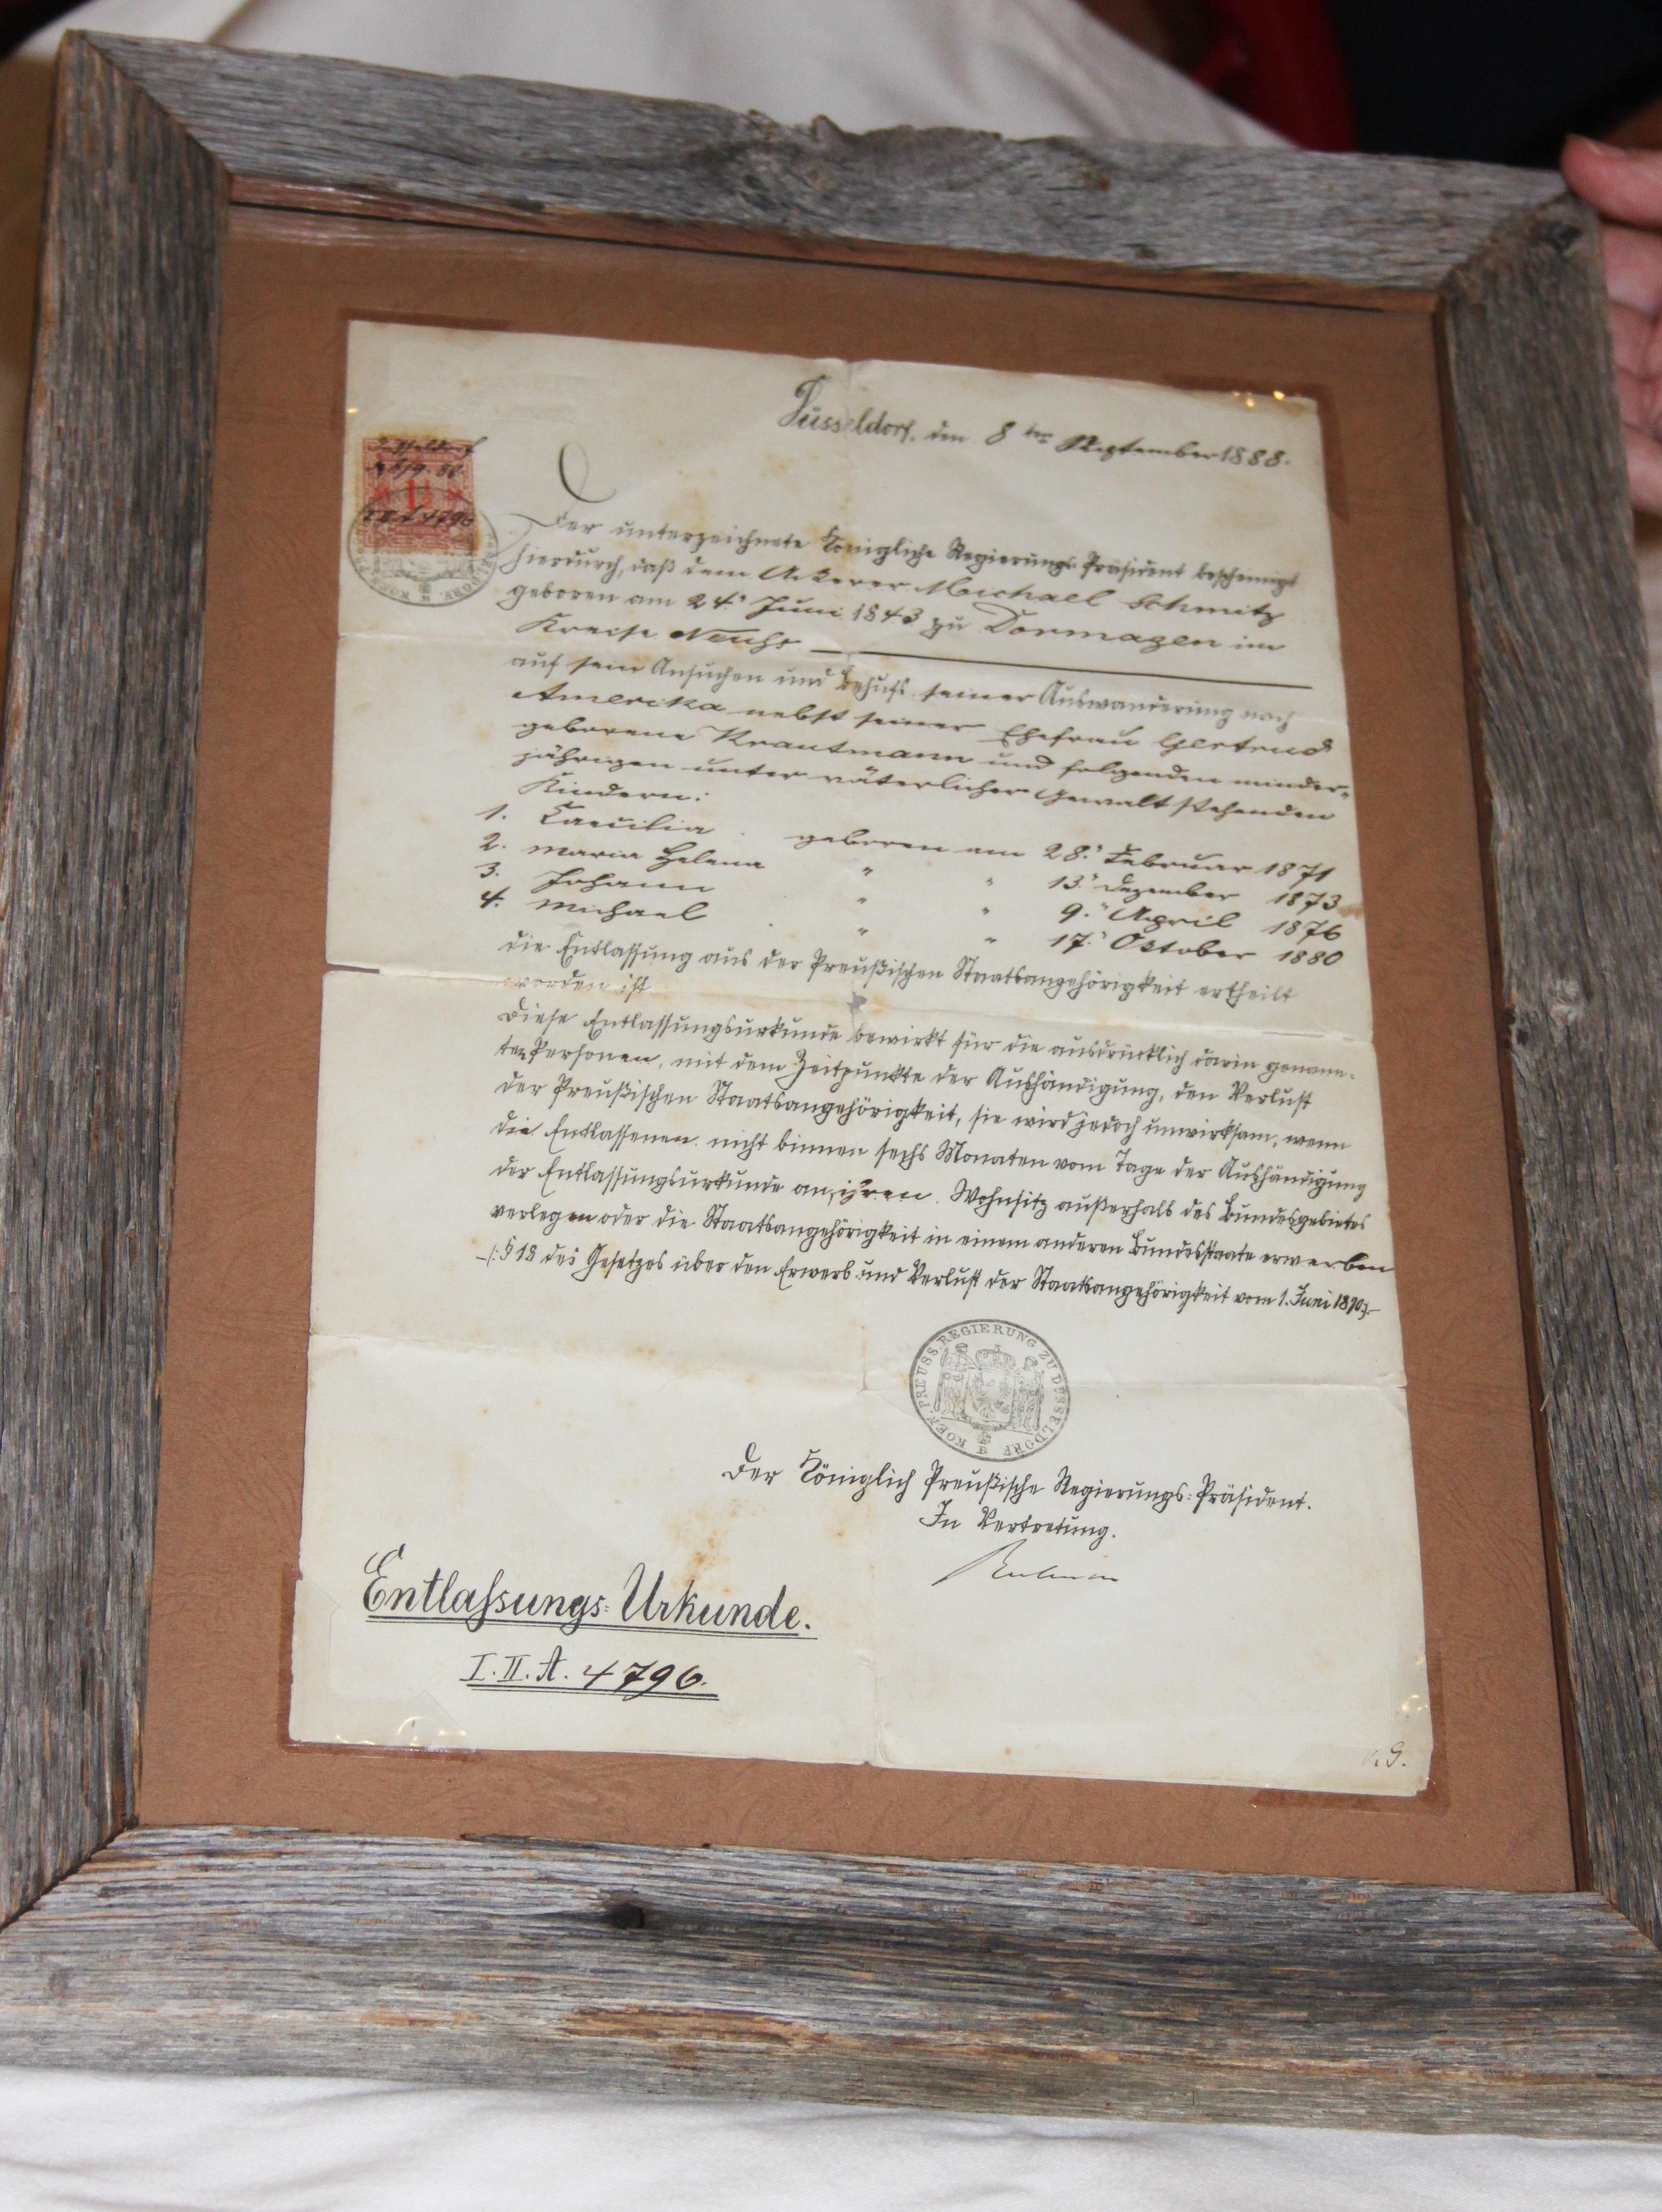 Düsseldorf, den 8ten September 1888.
Düsseldorf
8/9. 88.
1½
I II A 4796
Der unterzeichnete Königliche Regierungs-Präsident bescheinigt
hierdurch, daß dem Ackerer Michael Schmitz
geboren am 24. Juni 1843 zu Dormagen im
Kreise Neuß
auf sein Ansuchen und behufs seiner Auswanderung nach
Amerika nebst seiner Ehefrau Gertrud
geborene Krautmann und folgenden minder-
jährigen unter väterlicher Gewalt stehenden
Kindern:
1. Caecilia geboren am 28. Februar 1871
2. Maria Helena " " 13. Dezember 1873
3. Johann " " 9. April 1876
4. Michael " " 17. Oktober 1880
die Entlassung aus der Preußischen Staatsangehörigkeit ertheilt
worden ist
Diese Entlassungsurkunde bewirkt für die ausdrücklich darin genann-
ten Personen, mit dem Zeitpunkte der Aushändigung, den Verlust
der Preußischen Staatsangehörigkeit, sie wird jedoch unwirksam, wenn
die Entlassenen nicht binnen sechs Monaten vom Tage der Aushändigung
der Entlassungsurkunde an, ihren Wohnsitz außerhalb des Bundesgebietes
verlegen oder die Staatsangehörigkeit in einem anderen Bundesstaate erwerben
/: § 18 des Gesetzes über den Erwerb und Verlust der Staatsangehörigkeit vom 1. Juni 1870 :/
KOEN. PREUSS. REGIERUNG ZU DÜSSELDORF
Der Königlich Preußische Regierungs-Präsident.
In Vertretung.
Entlassungs-Urkunde.
I. II. A. 4796.